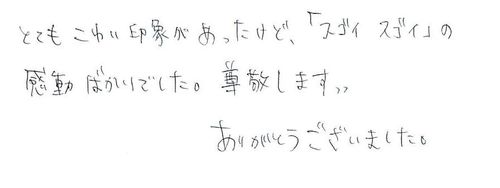 とてもこわい印象があったけど、「スゴイ スゴイ」の
感動ばかりでした。尊敬します。
ありがとうございました。